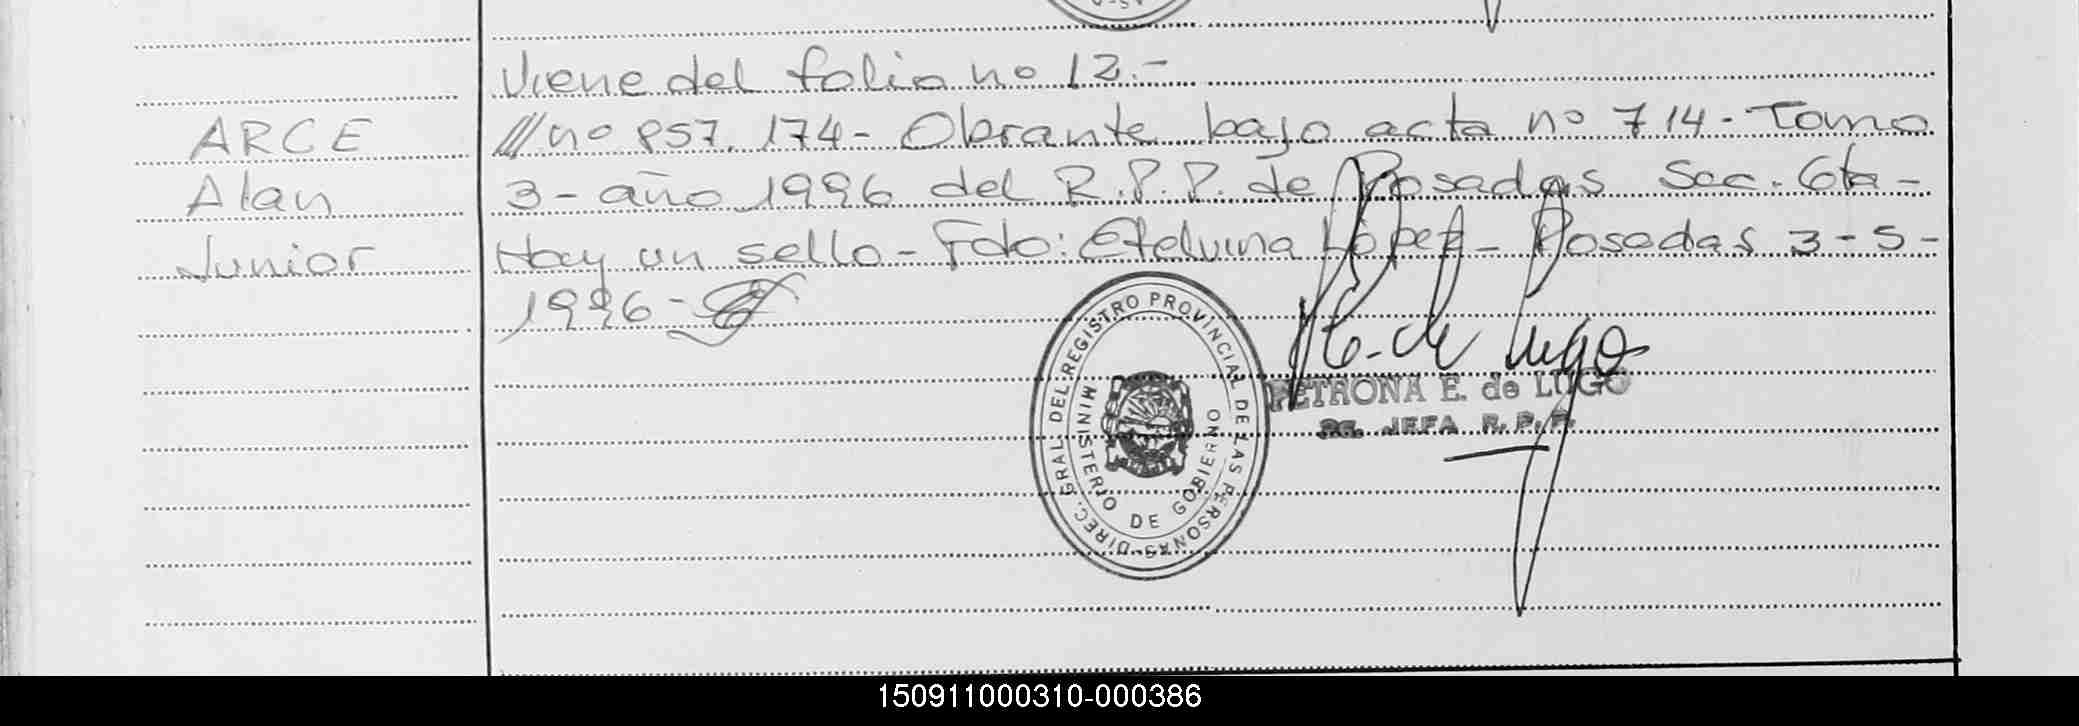 Viene del folio no 12.-
ARCE
Alan
Junior
/// no 857.174- Obrante bajo acta no 714- Tomo
3- año 1996 del R.P.P. de Posadas Sec. 6ta-
Hay un sello- Fdo: Etelvina López- Posadas 3-5-
1996-
DIREC. GRAL DEL REGISTRO PROVINCIAL DE LAS PERSONAS-
MINISTERIO DE GOBIERNO
de Lugo
PETRONA E. de LUGO
JEFA R.P.P.
150911000310-000386